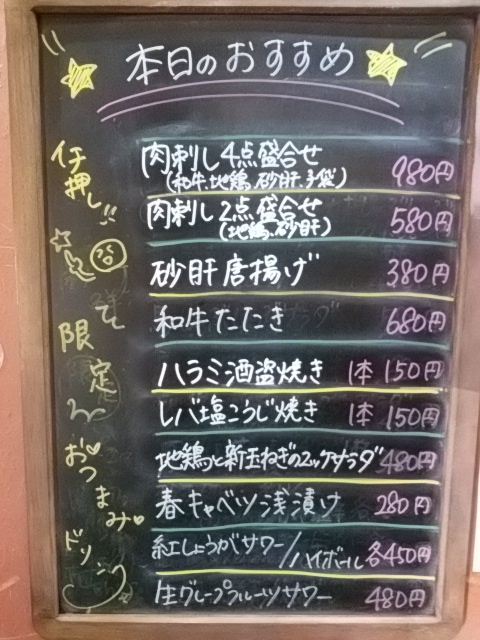 本日のおすすめ
肉刺し4点盛合せ 980円
(和牛.地鶏.砂肝.子袋)
肉刺し2点盛合せ 580円
(地鶏.砂肝)
砂肝唐揚げ 380円
和牛たたき 680円
ハラミ酒盗焼き 1本 150円
レバ塩こうじ焼き 1本 150円
地鶏と新玉ねぎのユッケサラダ 480円
春キャベツ浅漬け 280円
紅しょうがサワー/ハイボール 各450円
生グレープフルーツサワー 480円
イチ押し!!
限定
おつまみ
ドリンク